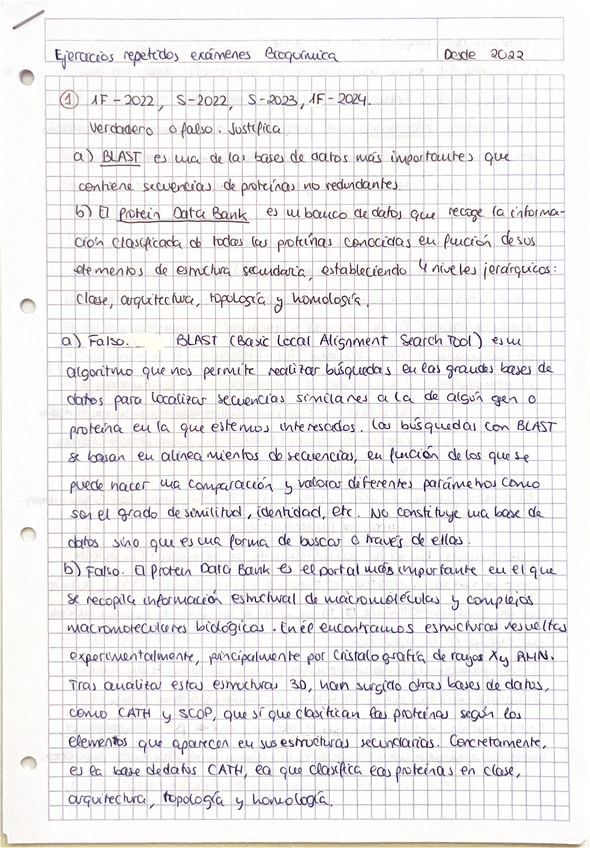 Ejercicios repetidos exámenes Bioquímica Desde 2022
① 1F-2022, S-2022, S-2023, 1F-2024.
Verdadero o falso. Justifica
a) BLAST es una de las bases de datos más importantes que
contiene secuencias de proteínas no redundantes
b) El Protein Data Bank es un banco de datos que recoge la informa-
ción clasificada de todas las proteínas conocidas en función de sus
elementos de estructura secundaria, estableciendo 4 niveles jerárquicos:
clase, arquitectura, topología y homología.
a) Falso. BLAST (Basic Local Alignment Search Tool) es un
algoritmo que nos permite realizar búsquedas en las grandes bases de
datos para localizar secuencias similares a la de algún gen o
proteína en la que estemos interesados. Las búsquedas con BLAST
se basan en alineamientos de secuencias, en función de los que se
puede hacer una comparación y valorar diferentes parámetros como
son el grado de similitud, identidad, etc. No constituye una base de
datos sino que es una forma de buscar a través de ellas.
b) Falso. El Protein Data Bank es el portal más importante en el que
se recopila información estructural de macromoléculas y complejos
macromoleculares biológicos. En él encontramos estructuras resueltas
experimentalmente, principalmente por cristalografía de rayos X y RMN.
Tras analizar estas estructuras 3D, han surgido otras bases de datos,
como CATH y SCOP, que sí que clasifican las proteínas según los
elementos que aparecen en sus estructuras secundarias. Concretamente,
es la base de datos CATH, la que clasifica las proteínas en clase,
arquitectura, topología y homología.